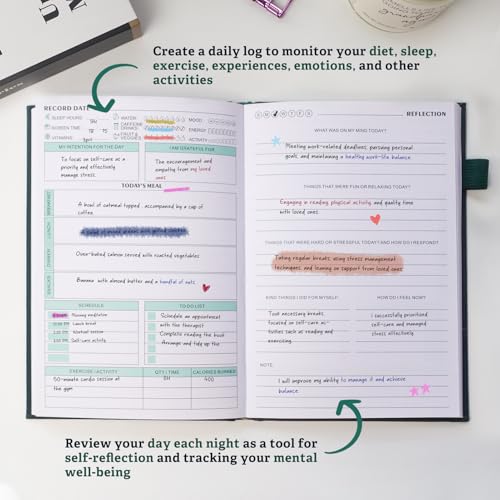 Create a daily log to monitor your diet, sleep,
exercise, experiences, emotions, and other
activities
RECORD DATE
SLEEP HOURS
SCREEN TIME
VITAMINS
WATER
CAFFEINE
DRINKS
FRUIT &
VEGGIES
MOOD
ENERGY
ACTIVITY
MY INTENTION FOR THE DAY
I AM GRATEFUL FOR
To focus on self-care as a
priority and effectively
manage stress.
The encouragement and
empathy from my loved
ones.
TODAY'S MEAL
BREAKFAST
A bowl of oatmeal topped , accompanied by a cup of
coffee.
LUNCH
DINNER
Oven-baked salmon served with roasted vegetables.
SNACKS
Banana with almond butter and a handful of nuts.
SCHEDULE
Morning meditation
Lunch break
Workout session
Self-care activity
TO DO LIST
Schedule an appointment
with the therapist
Complete reading the book
Arrange and tidy up the
EXERCISE / ACTIVITY
QTY / TIME
CALORIES BURNED
50-minute cardio session at
the gym
400
S M T W T F S
REFLECTION
WHAT WAS ON MY MIND TODAY?
Meeting work-related deadlines, pursuing personal
goals, and maintaining a healthy work-life balance.
THINGS THAT WERE FUN OR RELAXING TODAY?
Engaging in reading, physical activity, and quality time
with loved ones.
THINGS THAT WERE HARD OR STRESSFUL TODAY? AND HOW DO I RESPOND?
Taking regular breaks, using stress management
techniques, and leaning on support from loved ones
KIND THINGS I DID FOR MYSELF:
HOW DO I FEEL NOW?
Took necessary breaks,
focused on self-care ac-
tivities such as reading and
exercising.
I successfully prioritized
self-care and managed
stress effectively.
NOTE:
I will improve my ability to manage it and achieve
balance.
Review your day each night as a tool for
self-reflection and tracking your mental
well-being